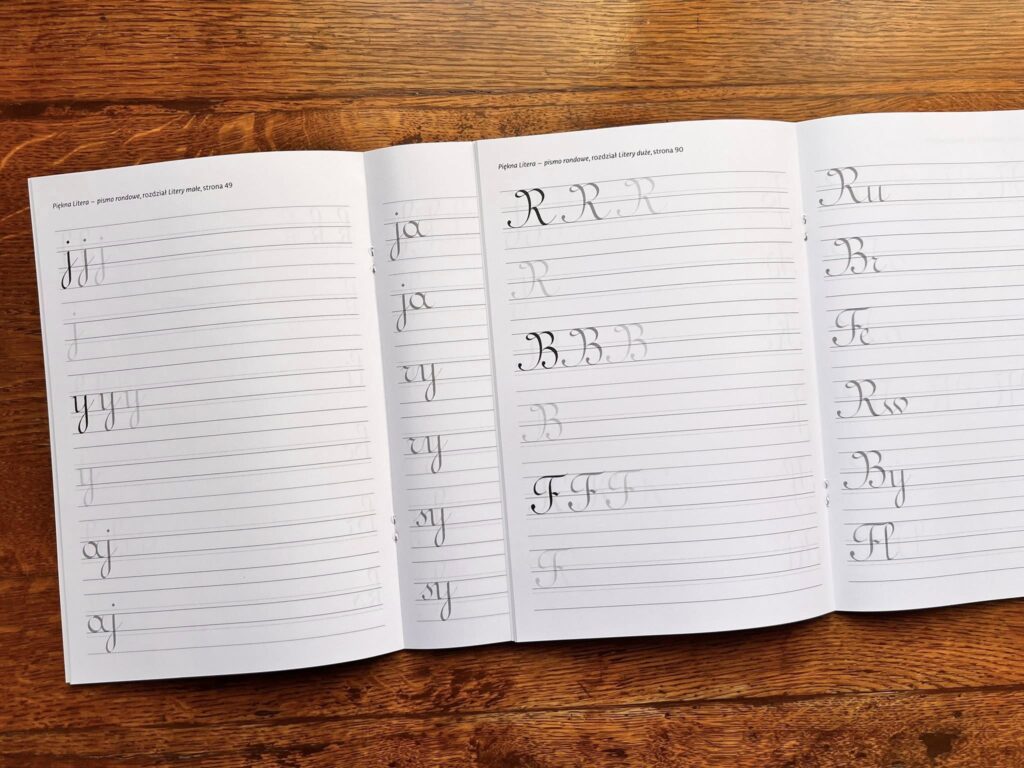 Piękna Litera – pismo rondowe, rozdział Litery małe, strona 49
j j j
j
y y y
y
aj
aj
ja
ja
ry
ry
sy
sy
Piękna Litera – pismo rondowe, rozdział Litery duże, strona 90
R R R
R
B B B
B
F F F
F
Ru
Br
Fc
Rw
By
Fl